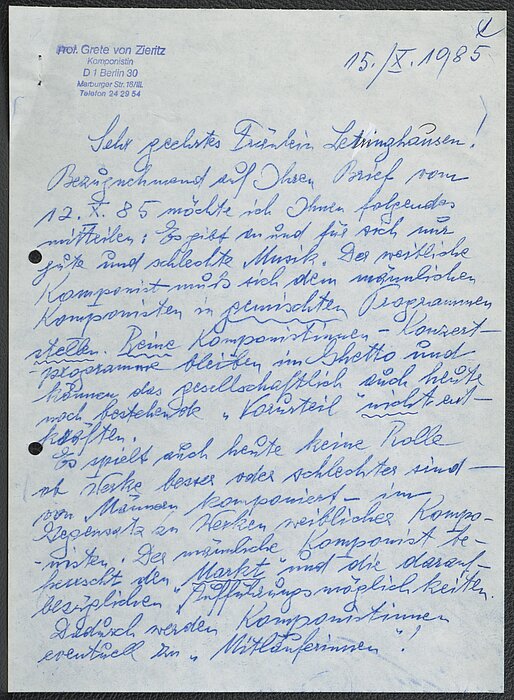 Prof. Grete von Zieritz
Komponistin
D 1 Berlin 30
Marburger Str. 16/III.
Telefon 24 29 54
15./X. 1985
Sehr geehrtes Fräulein Letringhausen!
Bezugnehmend auf Ihren Brief vom
12. X. 85 möchte ich Ihnen folgendes
mitteilen: Es gibt an und für sich nur
gute und schlechte Musik. Der weibliche
Komponist muß sich dem männlichen
Komponisten in gemischten Programmen
stellen. Reine Komponistinnen – Konzert-
programme bleiben im Ghetto und
können das gesellschaftlich auch heute
noch bestehende „Vorurteil" nicht ent-
kräften.
Es spielt auch heute keine Rolle
ob Werke besser oder schlechter sind –
von Männern komponiert – im
Gegensatz zu Werken weiblicher Kompo-
-nisten. Der männliche Komponist be-
herrscht den „Markt" und die darauf-
bezüglichen „Aufführungsmöglichkeiten.
Dadurch werden Komponistinnen
eventuell zu „Mitläuferinnen"!